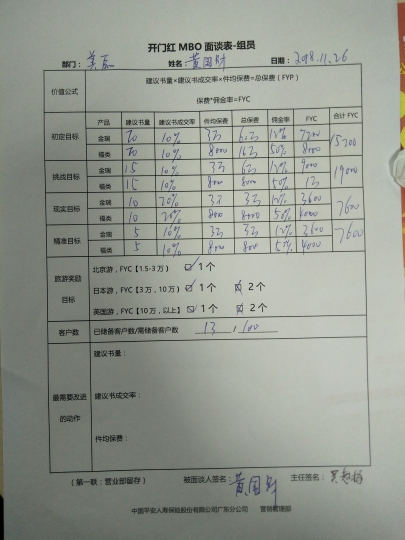 开门红 MBO 面谈表-组员
部门： 姓名：黄国财 日期：2018.11.26
价值公式 建议书量×建议书成交率×件均保费=总保费（FYP）
保费*佣金率=FYC
产品 建议书量 建议书成交率 件均保费 总保费 佣金率 FYC 合计 FYC
初定目标 金瑞 20 10% 3万 6万 12% 7200 15200
福类 20 10% 8000 50% 8000
挑战目标 金瑞 15 10% 3万 12% 9000 19000
福类 15 10% 8000 50% 1万
现实目标 金瑞 10 20% 3万 3万 12% 3600 7600
福类 10 20% 8000 8000 50% 4000
精准目标 金瑞 5 10% 3万 3万 12% 3600 7600
福类 5 10% 8000 800 5% 4000
旅游奖励目标
北京游，FYC【1.5-3 万】 ☑ 1 个
日本游，FYC【3 万，10 万】 ☑ 1 个 ☒ 2 个
英国游，FYC【10 万，以上】 ☑ 1 个 ☒ 2 个
客户数 已储备客户数/需储备客户数 13 / 100
最需要改进的动作
建议书量：
建议书成交率：
件均保费：
（第一联：营业部留存） 被面谈人签名：黄国财 主任签名：
中国平安人寿保险股份有限公司广东分公司 营销管理部